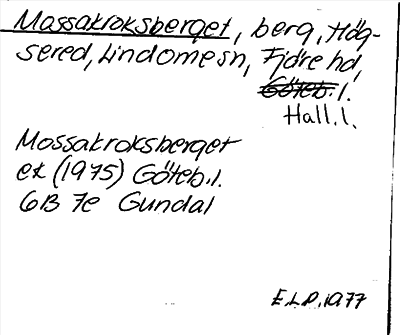 Massakroksberget, berg, Hög-
sered, Lindome sn, Fjäre hd,
Göteb.l.
Hall.l.
Mossakroksberget
ek (1975) Göteb.l.
6B 7e Gundal
E.L.P. 1977